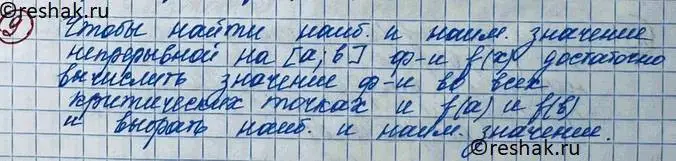 9 Чтобы найти наиб. и наим. значение
непрерывной на [a;в] ф-и f(x) достаточно
вычислить значение ф-и во всех
критических точках и f(a) и f(в)
и выбрать наиб. и наим. значение.
Reshak.ru